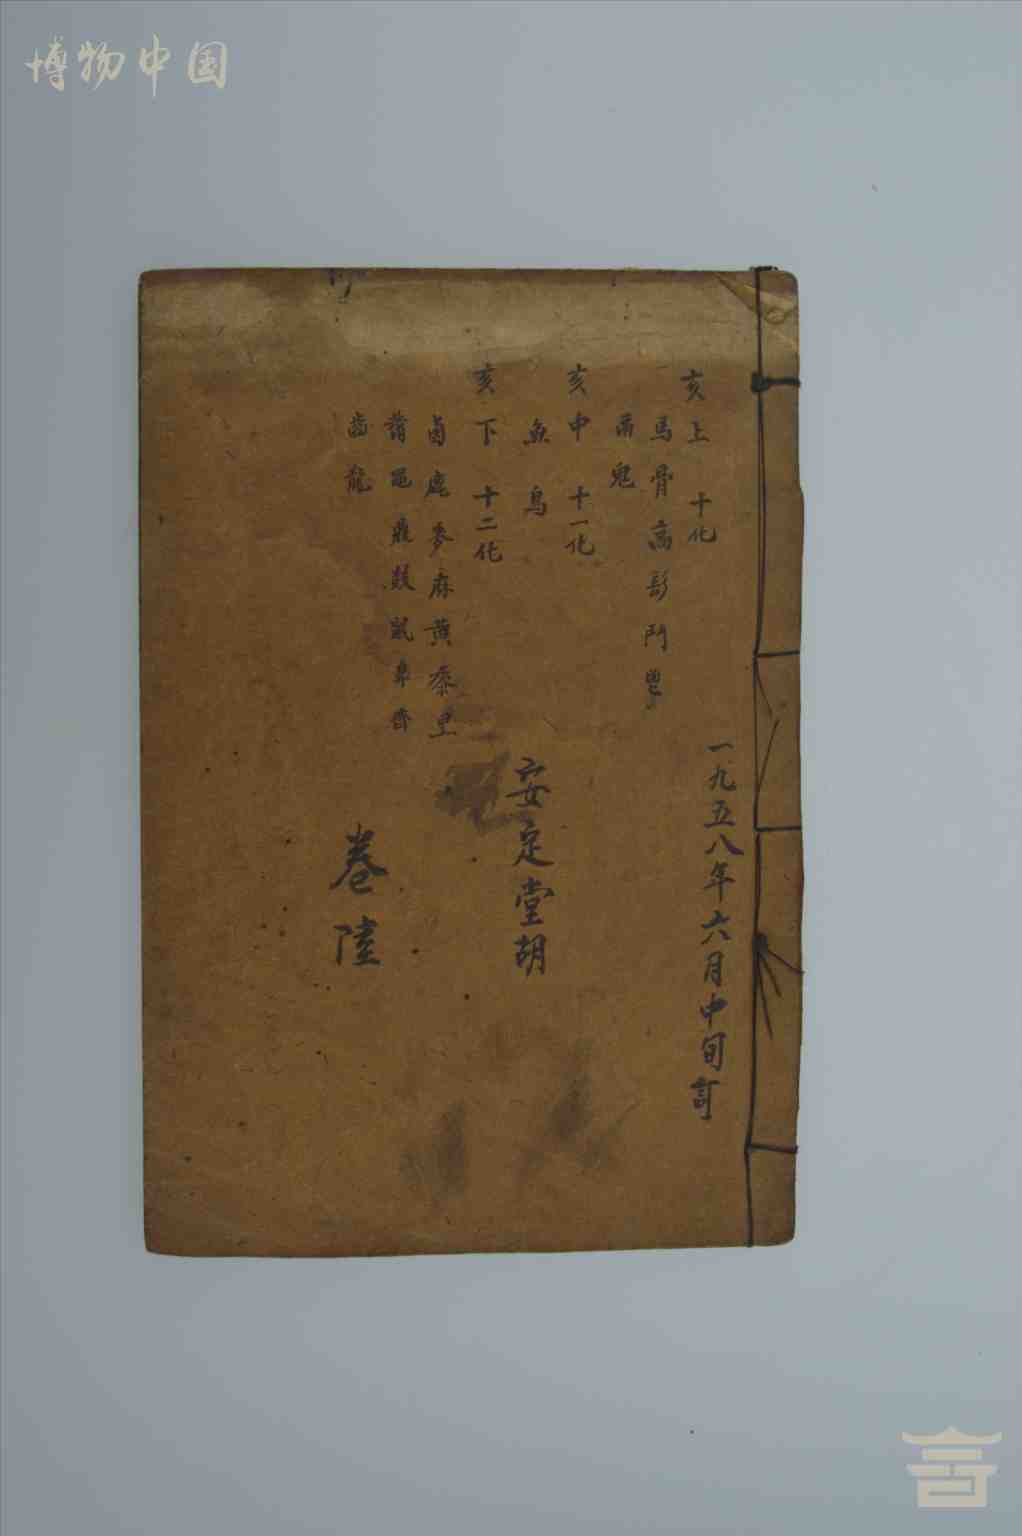 博物中国
亥上 十化
馬骨高髟鬥鬯
鬲鬼
亥中 十一化
魚鳥
亥下 十二化
鹵鹿麥麻黃黍黑
黹黽鼎鼓鼠鼻齊
齒龍
一九五八年六月中旬訂
安定堂胡
卷陸